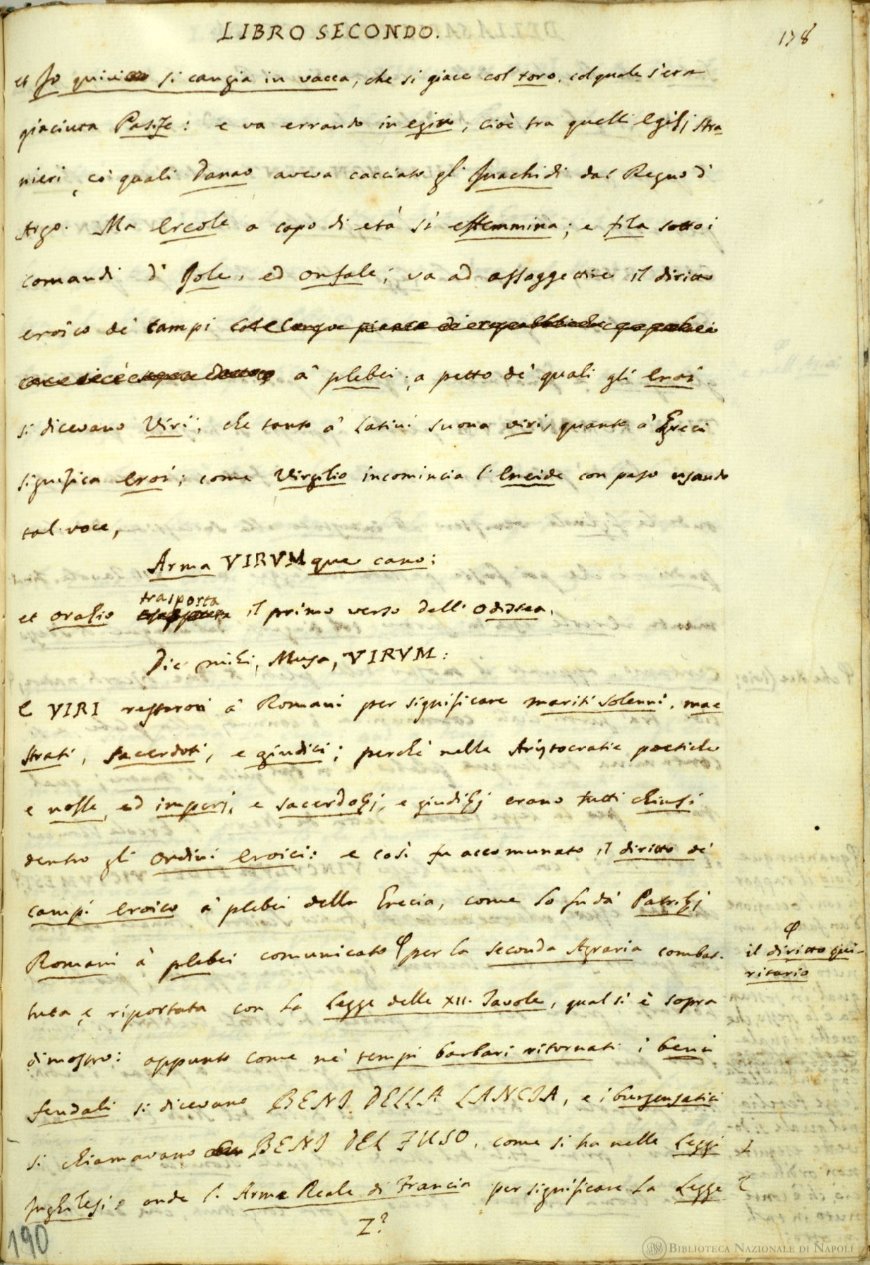 LIBRO SECONDO.
178
et Jo quivi si cangia in vacca, che si giace col toro, col quale s'era
giaciuta Pasife: e va errando in egitto, cioè tra quelli Egizj stra
nieri, co' quali Danao aveva cacciato gl' Inachidi dal Regno d'
Argo. Ma Ercole a capo di età si effemmina; e fila sotto i
comandi d' Jole, ed Onfale; va ad assoggettire il diritto
eroico de' campi
a' plebei; a petto de' quali gli Eroi
si dicevano Viri; che tanto a' latini suona viri, quanto a' Greci
significa eroi; come Virgilio incomincia l'Eneide con peso usando
tal voce,
Arma VIRVMque cano:
trasporta
et Orazio il primo verso dell' Odissea,
Dic mihi, Musa, VIRVM:
E VIRI restaron a' Romani per significare mariti solenni, mae
strati, sacerdoti, e giudici; perchè nelle Aristocratie poetiche
e nozze, ed imperj, e sacerdozj, e giudizj erano tutti chiusi
dentro gli ordini eroici: e così fu accomunato il diritto de'
campi eroico a' plebei della Grecia, come lo fu da' Patrizj
Romani a' plebei comunicato φ per la seconda Agraria combat-
φ
il diritto qui-
ritario
tuta e riportata con la legge delle XII. Tavole, qual si è sopra
dimostro: appunto come ne' tempi barbari ritornati i beni
feudali si dicevano BENI DELLA LANCIA, e i burgensatici
si chiamavano BENI DEL FUSO, come si ha nelle Leggi
Inghilesi: onde l' Arme Reale di Francia per significare la Legge
Z 2
190
BIBLIOTECA NAZIONALE DI NAPOLI